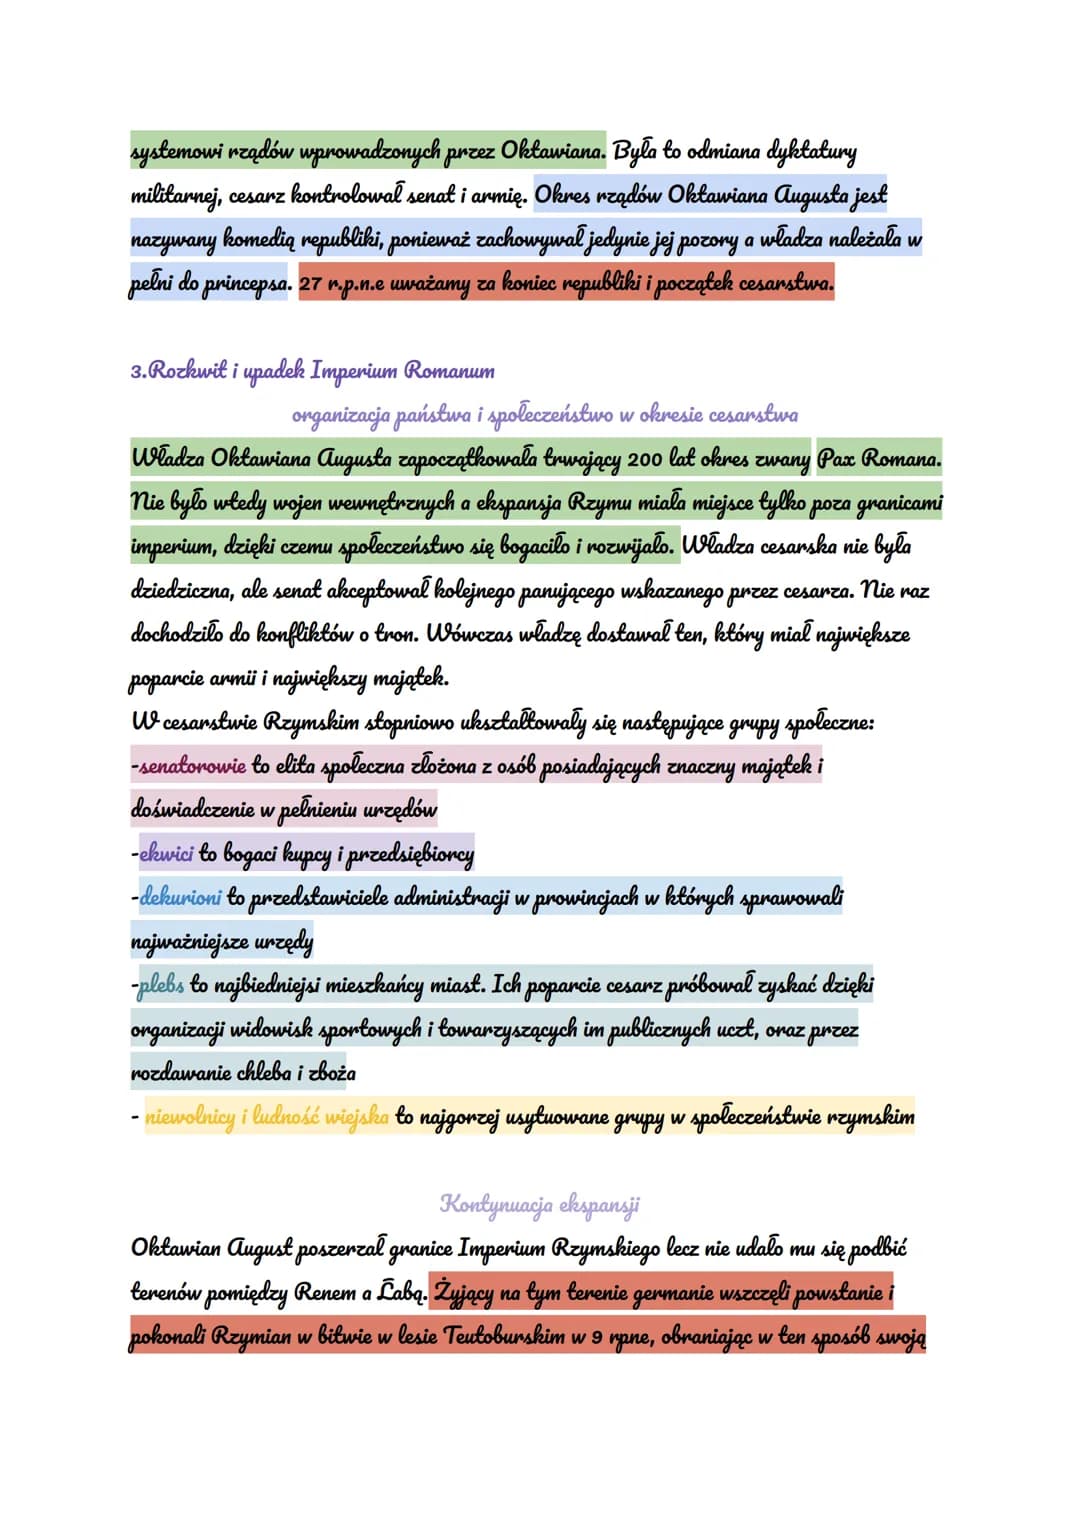 systemowi rządów wprowadzonych przez Oktawiana. Była to odmiana dyktatury
militarnej, cesarz kontrolował senat i armię. Okres rządów Oktawiana Augusta jest
nazywany komedią republiki, ponieważ zachowywał jedynie jej pozory a władza należała w
pełni do princepsa. 27 r.p.n.e uważamy za koniec republiki i początek cesarstwa.
3.Rozkwit i upadek Imperium Romanum
organizacja państwa i społeczeństwo w okresie cesarstwa
Władza Oktawiana Augusta zapoczątkowała trwający 200 lat okres zwany Pax Romana.
Nie było wtedy wojen wewnętrznych a ekspansja Rzymu miała miejsce tylko poza granicami
imperium, dzięki czemu społeczeństwo się bogaciło i rozwijało. Władza cesarska nie była
dziedziczna, ale senat akceptował kolejnego panującego wskazanego przez cesarza. Nie raz
dochodziło do konfliktów o tron. Wówczas władzę dostawał ten, który miał największe
poparcie armii i największy majątek.
W cesarstwie Rzymskim stopniowo ukształtowały się następujące grupy społeczne:
-senatorowie to elita społeczna złożona z osób posiadających znaczny majątek i
doświadczenie w pełnieniu urzędów
-ekwici to bogaci kupcy i przedsiębiorcy
-dekurioni to przedstawiciele administracji w prowincjach w których sprawowali
najważniejsze urzędy
-plebs to najbiedniejsi mieszkańcy miast. Ich poparcie cesarz próbował zyskać dzięki
organizacji widowisk sportowych i towarzyszących im publicznych uczt, oraz przez
rozdawanie chleba i zboża
- niewolnicy i ludność wiejska to najgorzej usytuowane grupy w społeczeństwie rzymskim
Kontynuacja ekspansji
Oktawian August poszerzał granice Imperium Rzymskiego lecz nie udało mu się podbić
terenów pomiędzy Renem a Łabą. Żyjący na tym terenie germanie wszczęli powstanie i
pokonali Rzymian w bitwie w lesie Teutoburskim w 9 rpne, obraniając w ten sposób swoją